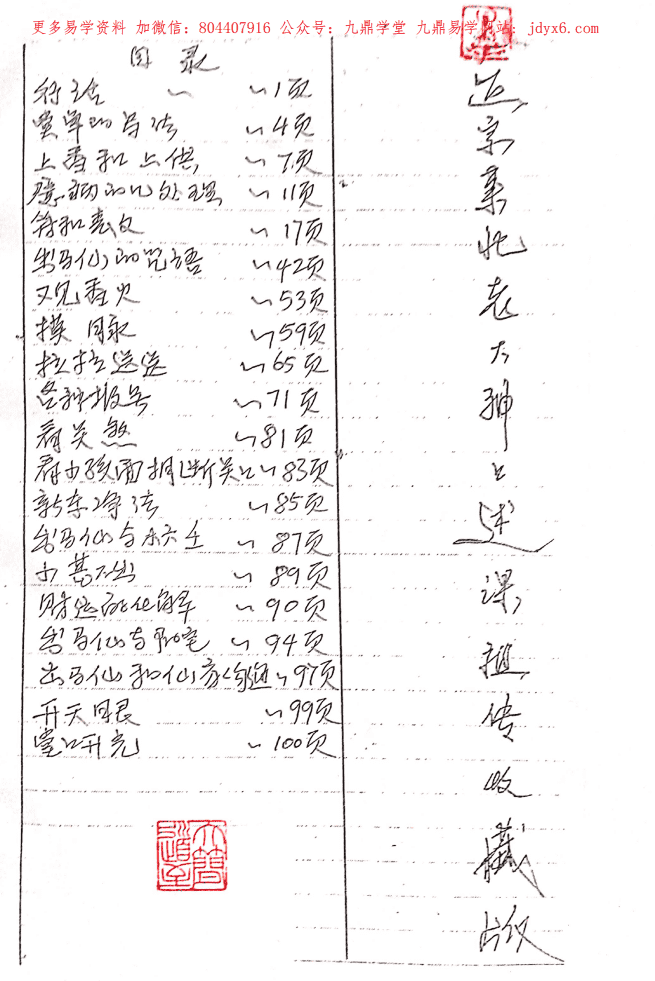 更多易学资料 加微信：804407916 公众号：九鼎学堂 九鼎易学网站：jdyx6.com
目录
1页
堂单的写法 4页
上香和上供 7页
11页
符和表文 17页
出马仙的咒语 42页
又见香火 53页
摸 59页
拉拉送送 65页
各种报号 71页
看关煞 81页
看小孩面相断关口 83页
新车净法 85页
出马仙与六壬 87页
89页
财运的化解 90页
出马仙与阳宅 94页
出马仙和仙家沟通 97页
开天目 99页
堂口开光 100页
东北老大神口述
课
祖传收藏版
大道至简